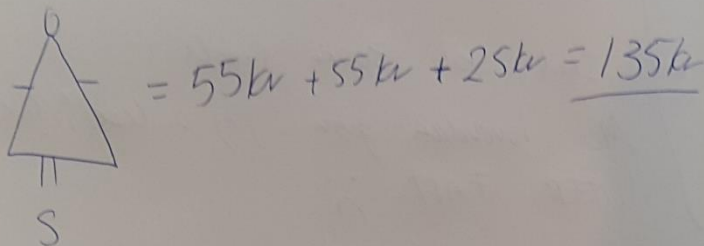 = 55kr + 55kr + 25kr = 135kr
S